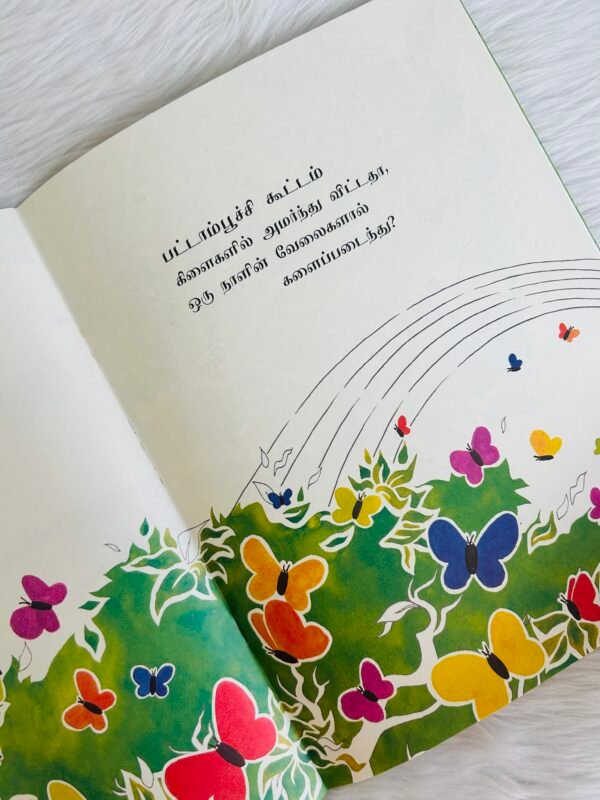 பட்டாம்பூச்சி கூட்டம்
கிளைகளில் அமர்ந்து விட்டதா,
ஒரு நாளின் வேலைகளால்
களைப்படைந்து?